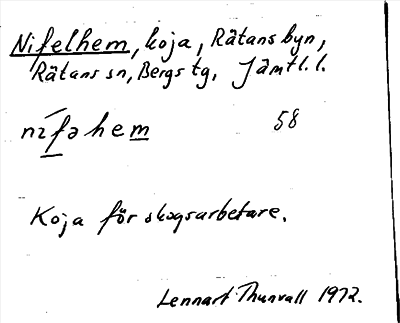 Nifelhem, koja, Rätans byn,
Rätans sn, Bergs tg, Jämtl. l.
nī́fəhem 58
Koja för skogsarbetare.
Lennart Thunvall 1972.